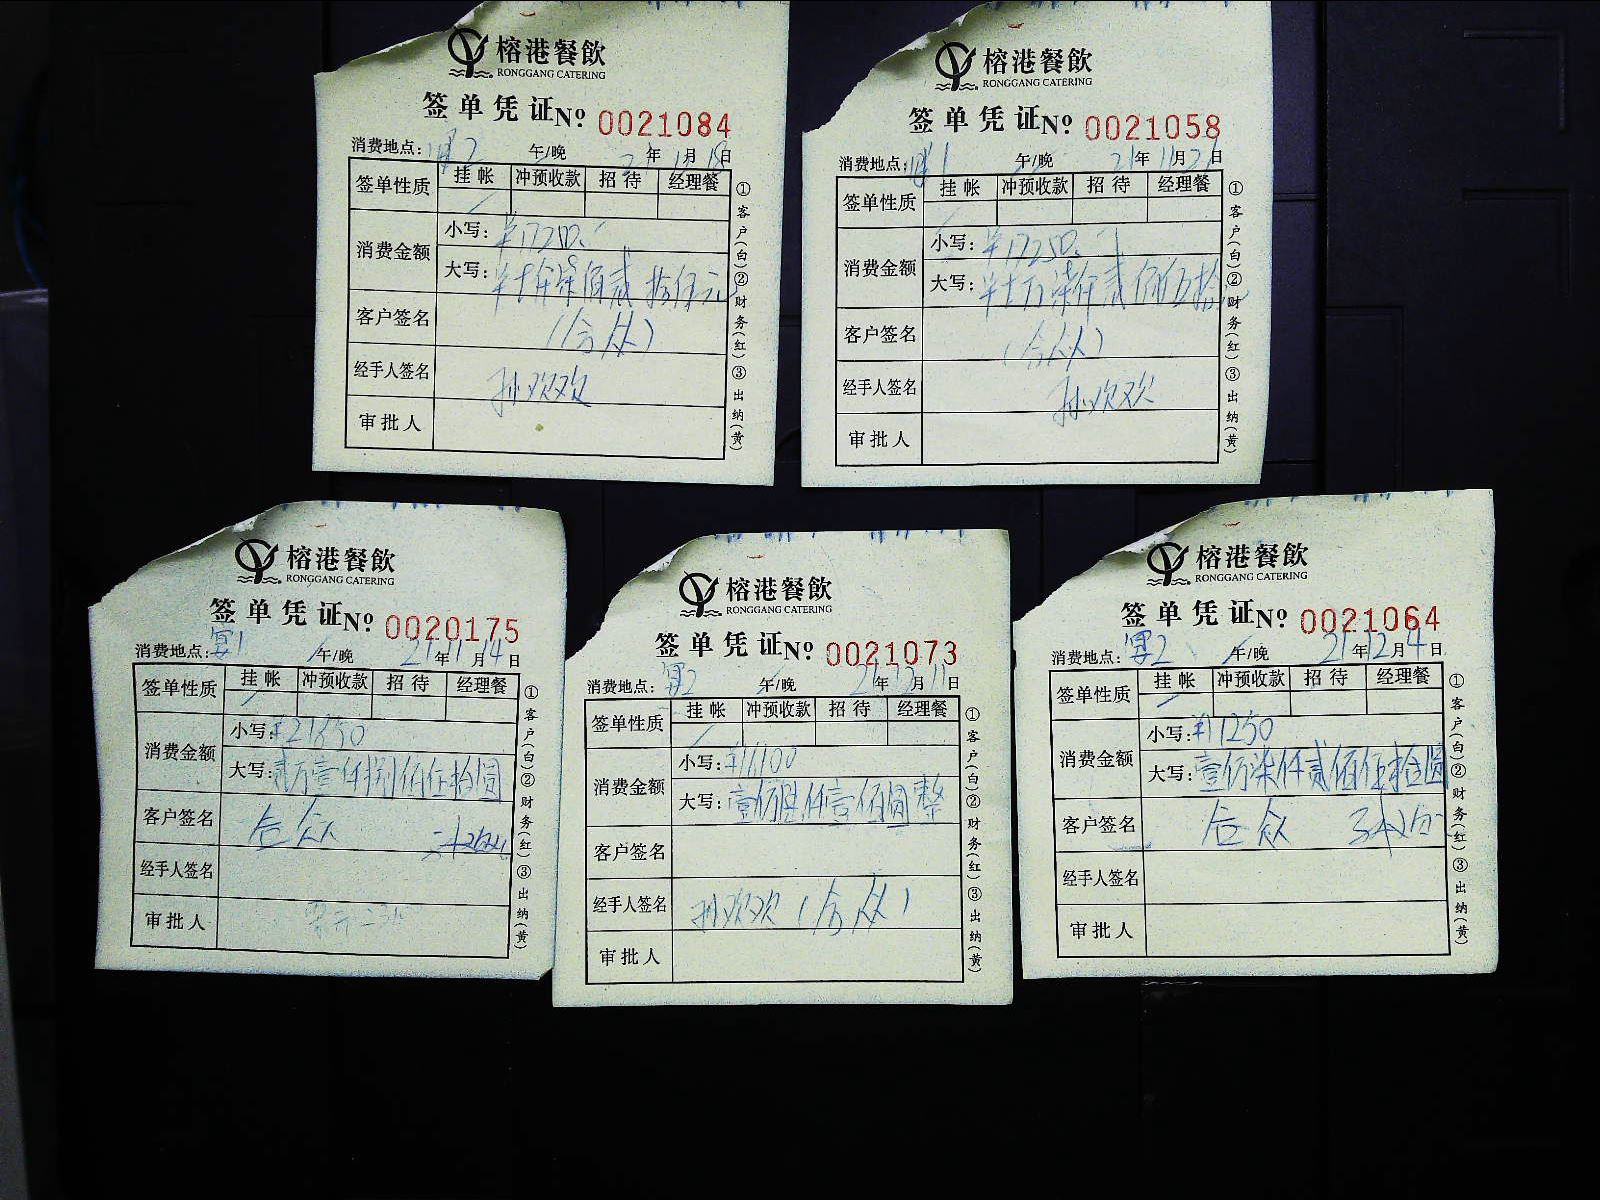 榕港餐飲
RONGGANG CATERING
签单凭证№ 0021084
消费地点: 2 午/晚 21年11月18日
签单性质 挂帐 冲预收款 招待 经理餐
消费金额 小写: ¥17250.
大写:
客户签名 (合众)
经手人签名 孙欢欢
审批人
①客户(白)②财务(红)③出纳(黄)
榕港餐飲
RONGGANG CATERING
签单凭证№ 0021058
消费地点: 1 午/晚 21年11月21日
签单性质 挂帐 冲预收款 招待 经理餐
消费金额 小写: ¥17250.
大写: 万柒仟贰佰伍拾
客户签名 (合众)
经手人签名 孙欢欢
审批人
①客户(白)②财务(红)③出纳(黄)
榕港餐飲
RONGGANG CATERING
签单凭证№ 0020175
消费地点: 宴1 午/晚 21年11月14日
签单性质 挂帐 冲预收款 招待 经理餐
消费金额 小写: ¥21850
大写: 贰万壹仟捌佰伍拾圆
客户签名 合众
经手人签名
审批人
①客户(白)②财务(红)③出纳(黄)
榕港餐飲
RONGGANG CATERING
签单凭证№ 0021073
消费地点: 宴2 午/晚 21年12月11日
签单性质 挂帐 冲预收款 招待 经理餐
消费金额 小写: ¥16100
大写: 壹仟壹佰圆整
客户签名
经手人签名 孙欢欢(合众)
审批人
①客户(白)②财务(红)③出纳(黄)
榕港餐飲
RONGGANG CATERING
签单凭证№ 0021064
消费地点: 宴2 午/晚 21年12月4日
签单性质 挂帐 冲预收款 招待 经理餐
消费金额 小写: ¥17250
大写: 壹万柒仟贰佰伍拾圆
客户签名 合众
经手人签名
审批人
①客户(白)②财务(红)③出纳(黄)